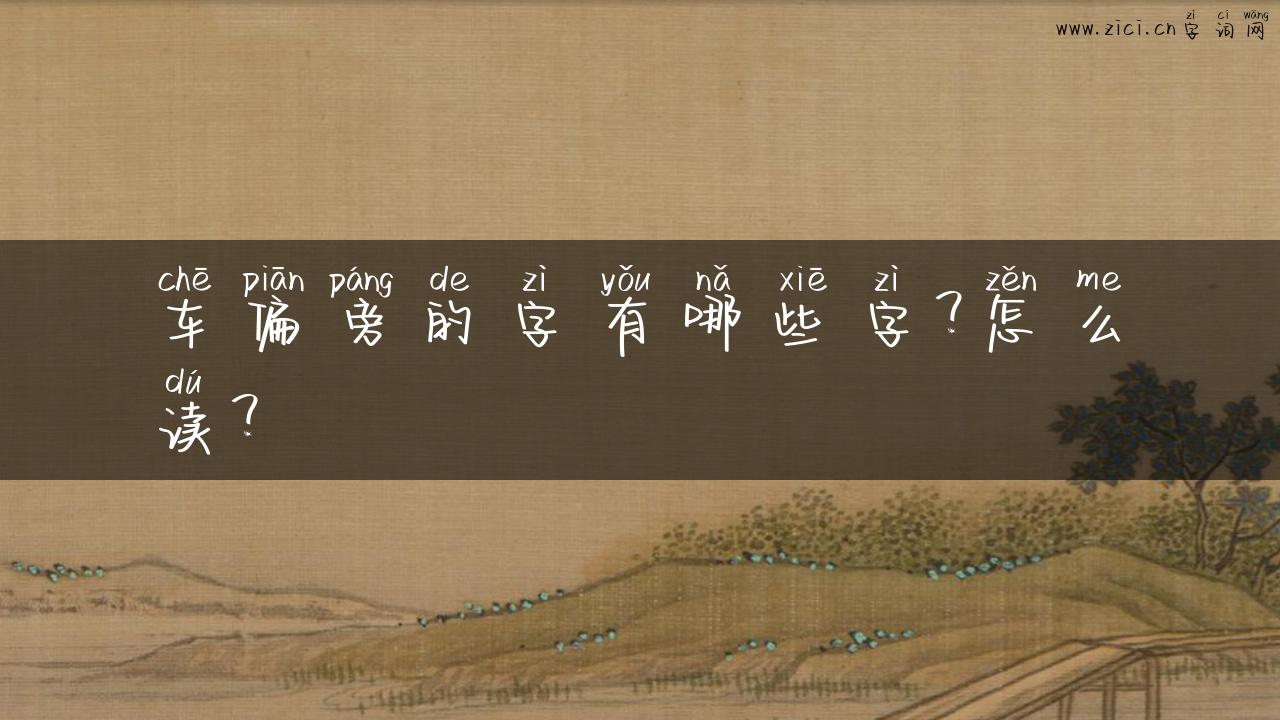 zì cí wǎng
www.zici.cn字词网
chē piān páng de zì yǒu nǎ xiē zì zěn me
车偏旁的字有哪些字？怎么
dú
读？